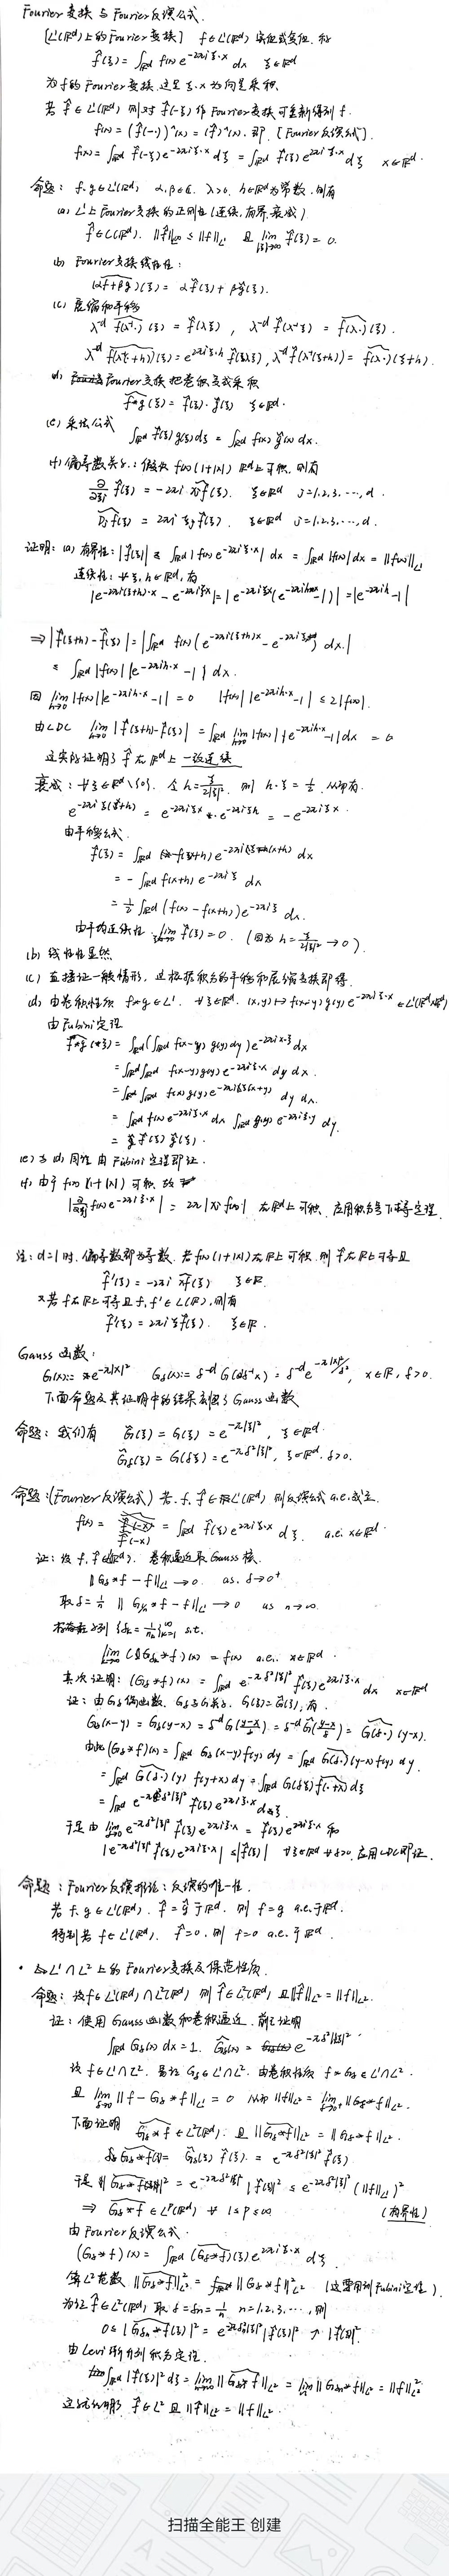 Fourier变换与Fourier反演公式.
[L¹(ℝᵈ)上的Fourier变换] f∈L¹(ℝᵈ) 实值或复值. 称
f̂(ξ) = ∫_ℝᵈ f(x) e^{-2πiξ·x} dx ξ∈ℝᵈ
为f的Fourier变换. 这里ξ·x为内积.
若 f̂∈L¹(ℝᵈ) 则对 f̂(-ξ) 作Fourier变换可重新得到f.
f(x) = (f̂(-·))^(x) = (f̂)^ˇ(x). 即. [Fourier反演公式].
f(x) = ∫_ℝᵈ f̂(-ξ) e^{-2πiξ·x} dξ = ∫_ℝᵈ f̂(ξ) e^{2πiξ·x} dξ x∈ℝᵈ.
命题: f,g∈L¹(ℝᵈ) α,β∈ℂ. λ>0. h∈ℝᵈ为常数. 则有
(a) L¹上Fourier变换的正则性(连续,有界,衰减)
f̂∈C(ℝᵈ). ‖f̂‖_∞ ≤ ‖f‖_{L¹} 且 lim_{|ξ|→∞} f̂(ξ) = 0.
(b) Fourier变换线性性:
(αf+βg)^(ξ) = αf̂(ξ) + βĝ(ξ).
(c) 展缩和平移
λ^{-d} (f(λ^{-1}·))^(ξ) = f̂(λξ), λ^{-d} f̂(λ^{-1}ξ) = (f(λ·))^(ξ).
λ^{-d} (f(λ^{-1}·+h))^(ξ) = e^{2πiξ·h} f̂(λξ), λ^{-d} f̂(λ^{-1}(ξ+h)) = (f(λ·))^(ξ+h).
(d) Fourier变换把卷积变成乘积
(f*g)^(ξ) = f̂(ξ)·ĝ(ξ) ξ∈ℝᵈ.
(e) 乘法公式
∫_ℝᵈ f̂(ξ) g(ξ) dξ = ∫_ℝᵈ f(x) ĝ(x) dx.
(f) 偏导数关系: 假设 f(x)(1+|x|) ℝᵈ上可积. 则有
∂/∂ξⱼ f̂(ξ) = -2πi (xⱼf)^(ξ). ξ∈ℝᵈ j=1,2,3,…,d.
(Dⱼf)^(ξ) = 2πi ξⱼ f̂(ξ). ξ∈ℝᵈ j=1,2,3,…,d.
证明: (a) 有界性: |f̂(ξ)| ≤ ∫_ℝᵈ |f(x) e^{-2πiξ·x}| dx = ∫_ℝᵈ |f(x)| dx = ‖f(x)‖_{L¹}
连续性: ∀ξ,h∈ℝᵈ, 有
|e^{-2πi(ξ+h)·x} - e^{-2πiξx}| = |e^{-2πiξx}(e^{-2πihx} - 1)| = |e^{-2πih} - 1|
⇒ |f̂(ξ+h) - f̂(ξ)| = |∫_ℝᵈ f(x)(e^{-2πi(ξ+h)x} - e^{-2πiξx}) dx|
≤ ∫_ℝᵈ |f(x)| |e^{-2πih·x} - 1| dx.
因 lim_{h→0} |f(x)| |e^{-2πih·x} - 1| = 0 |f(x)| |e^{-2πih·x} - 1| ≤ 2|f(x)|.
由LDC lim_{h→0} |f̂(ξ+h) - f̂(ξ)| = ∫_ℝᵈ lim_{h→0} |f(x)| |e^{-2πih·x} - 1| dx = 0
这实际证明了 f̂ 在ℝᵈ上一致连续
衰减: ∀ξ∈ℝᵈ\{0}. 令 h = ξ/(2|ξ|²). 则 h·ξ = 1/2. 从而有.
e^{-2πiξ(x+h)} = e^{-2πiξx}·e^{-2πiξh} = -e^{-2πiξx}.
由平移公式.
f̂(ξ) = ∫_ℝᵈ f(x+h) e^{-2πiξ(x+h)} dx
= -∫_ℝᵈ f(x+h) e^{-2πiξ} dx
= 1/2 ∫_ℝᵈ (f(x) - f(x+h)) e^{-2πiξ} dx.
由平均连续性 lim_{|ξ|→∞} f̂(ξ) = 0. (因为 h = ξ/(2|ξ|²) → 0).
(b) 线性性显然
(c) 直接证一般情形, 这根据积分的平移和展缩变换即得.
(d) 由卷积性质 f*g∈L¹. ∀ξ∈ℝᵈ. (x,y)↦f(x-y)g(y)e^{-2πiξ·x}∈L¹(ℝᵈ×ℝᵈ)
由Fubini定理
(f*g)^(ξ) = ∫_ℝᵈ (∫_ℝᵈ f(x-y) g(y) dy) e^{-2πix·ξ} dx
= ∫_ℝᵈ ∫_ℝᵈ f(x-y) g(y) e^{-2πiξ·x} dy dx.
= ∫_ℝᵈ ∫_ℝᵈ f(x) g(y) e^{-2πiξ(x+y)} dy dx.
= ∫_ℝᵈ f(x) e^{-2πiξ·x} dx ∫_ℝᵈ g(y) e^{-2πiξ·y} dy.
= f̂(ξ) ĝ(ξ).
(e) 与(d)同理由Fubini定理即证.
(f) 由于 f(x)(1+|x|) 可积. 故
|∂/∂ξⱼ f(x) e^{-2πiξ·x}| = 2π|xⱼf(x)| 在ℝᵈ上可积. 应用积分号下求导定理.
注: d=1时. 偏导数即为导数. 若 f(x)(1+|x|) 在ℝ上可积. 则 f̂ 在ℝ上可导且
f̂'(ξ) = -2πi (xf)^(ξ) ξ∈ℝ.
又若f在ℝ上可导且 f, f'∈L(ℝ), 则有
(f')^(ξ) = 2πiξf̂(ξ). ξ∈ℝ.
Gauss函数:
G(x) := e^{-π|x|²} G_δ(x) := δ^{-d} G(δ^{-1}x) = δ^{-d} e^{-π|x|²/δ²}, x∈ℝ, δ>0.
下面命题及其证明中的结果表明了Gauss函数
命题: 我们有 Ĝ(ξ) = G(ξ) = e^{-π|ξ|²}, ξ∈ℝᵈ.
Ĝ_δ(ξ) = G(δξ) = e^{-πδ²|ξ|²}, ξ∈ℝᵈ. δ>0.
命题: (Fourier反演公式) 若 f, f̂∈L¹(ℝᵈ) 则反演公式a.e.成立.
f(x) = f̂̂(-x) = ∫_ℝᵈ f̂(ξ) e^{2πiξ·x} dξ. a.e. x∈ℝᵈ.
证: 设 f, f̂∈L¹(ℝᵈ). 卷积逼近取Gauss核.
‖G_δ*f - f‖_{L¹} → 0. as. δ→0⁺
取 δ=1/n ‖G_{1/n}*f - f‖_{L¹} → 0 as n→∞.
存在子列 {δ_k = 1/n_k}_{k=1}^∞ s.t.
lim_{k→∞} (G_{δ_k}*f)(x) = f(x) a.e. x∈ℝᵈ.
其次证明: (G_δ*f)(x) = ∫_ℝᵈ e^{-πδ²|ξ|²} f̂(ξ) e^{2πiξ·x} dx x∈ℝᵈ
证: 由G_δ偶函数. G_δ与G关系. G(ξ)=Ĝ(ξ), 有.
G_δ(x-y) = G_δ(y-x) = δ^{-d} G((y-x)/δ) = δ^{-d} Ĝ((y-x)/δ) = (G(δ·))^(y-x).
由此 (G_δ*f)(x) = ∫_ℝᵈ G_δ(x-y) f(y) dy = ∫_ℝᵈ (G(δ·))^(y-x) f(y) dy.
= ∫_ℝᵈ (G(δ·))^(y) f(y+x) dy = ∫_ℝᵈ G(δξ) (f(·+x))^ dξ
= ∫_ℝᵈ e^{-πδ²|ξ|²} f̂(ξ) e^{2πiξ·x} dξ.
于是由 lim_{δ→0} e^{-πδ²|ξ|²} f̂(ξ) e^{2πiξ·x} = f̂(ξ) e^{2πiξ·x} 和
|e^{-πδ²|ξ|²} f̂(ξ) e^{2πiξ·x}| ≤ |f̂(ξ)| ∀ξ∈ℝᵈ ∀δ>0. 应用LDC即证.
命题: Fourier反演推论: 反演的唯一性.
若 f, g∈L¹(ℝᵈ). f̂ = ĝ 于ℝᵈ. 则 f=g a.e.于ℝᵈ.
特别若 f∈L¹(ℝᵈ). f̂=0. 则 f=0 a.e.于ℝᵈ.
• L¹∩L²上的Fourier变换及保范性质.
命题: 设 f∈L¹(ℝᵈ)∩L²(ℝᵈ) 则 f̂∈L²(ℝᵈ) 且 ‖f̂‖_{L²} = ‖f‖_{L²}.
证: 使用Gauss函数和卷积逼近. 前已证明
∫_ℝᵈ G_δ(x) dx = 1. Ĝ_δ(x) = e^{-πδ²|ξ|²}.
设 f∈L¹∩L². 易证 G_δ∈L¹∩L². 由卷积性质 f*G_δ∈L¹∩L².
且 lim_{δ→0} ‖f - G_δ*f‖_{L²} = 0 从而 ‖f‖_{L²} = lim_{δ→0⁺} ‖G_δ*f‖_{L²}.
下面证明 (G_δ*f)^∈L²(ℝᵈ). 且 ‖(G_δ*f)^‖_{L²} = ‖G_δ*f‖_{L²}.
(G_δ*f)^(ξ) = Ĝ_δ(ξ) f̂(ξ) = e^{-πδ²|ξ|²} f̂(ξ)
于是 |(G_δ*f)^(ξ)|² = e^{-2πδ²|ξ|²} |f̂(ξ)|² ≤ e^{-2πδ²|ξ|²} (‖f‖_{L¹})²
⇒ (G_δ*f)^∈Lᵖ(ℝᵈ) ∀ 1≤p≤∞ (有界性)
由Fourier反演公式.
(G_δ*f)(x) = ∫_ℝᵈ (G_δ*f)^(ξ) e^{2πiξ·x} dξ.
算L²范数 ‖(G_δ*f)^‖²_{L²} = ‖G_δ*f‖²_{L²} (这需用到Fubini定理).
为证 f̂∈L²(ℝᵈ) 取 δ=δ_n=1/n n=1,2,3,…, 则
0 ≤ |(G_{δ_n}*f)^(ξ)|² = e^{-2πδ_n²|ξ|²} |f̂(ξ)|² ↗ |f̂(ξ)|².
由Levi渐升列积分定理.
∫_ℝᵈ |f̂(ξ)|² dξ = lim_{n→∞} ‖(G_{δ_n}*f)^‖_{L²} = lim_{n→∞} ‖G_{δ_n}*f‖_{L²} = ‖f‖²_{L²}
这就证明了 f̂∈L² 且 ‖f̂‖_{L²} = ‖f‖_{L²}.
扫描全能王 创建